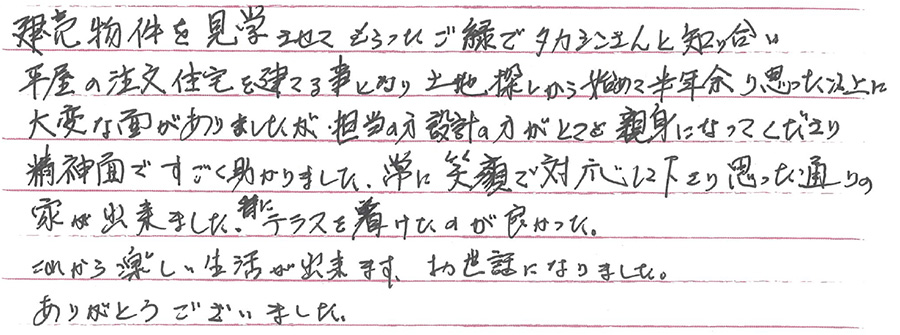 建売物件を見学させてもらったご縁でタカシンさんと知り合い
平屋の注文住宅を建てる事となり土地探しから始めて半年余り思った以上に
大変な面がありましたが、担当の方設計の方がとても親身になってくださり
精神面ですごく助かりました。常に笑顔で対応して下さり思った通りの
家が出来ました。特にテラスを着けたのが良かった。
これから楽しい生活が出来ます。お世話になりました。
ありがとうございました。